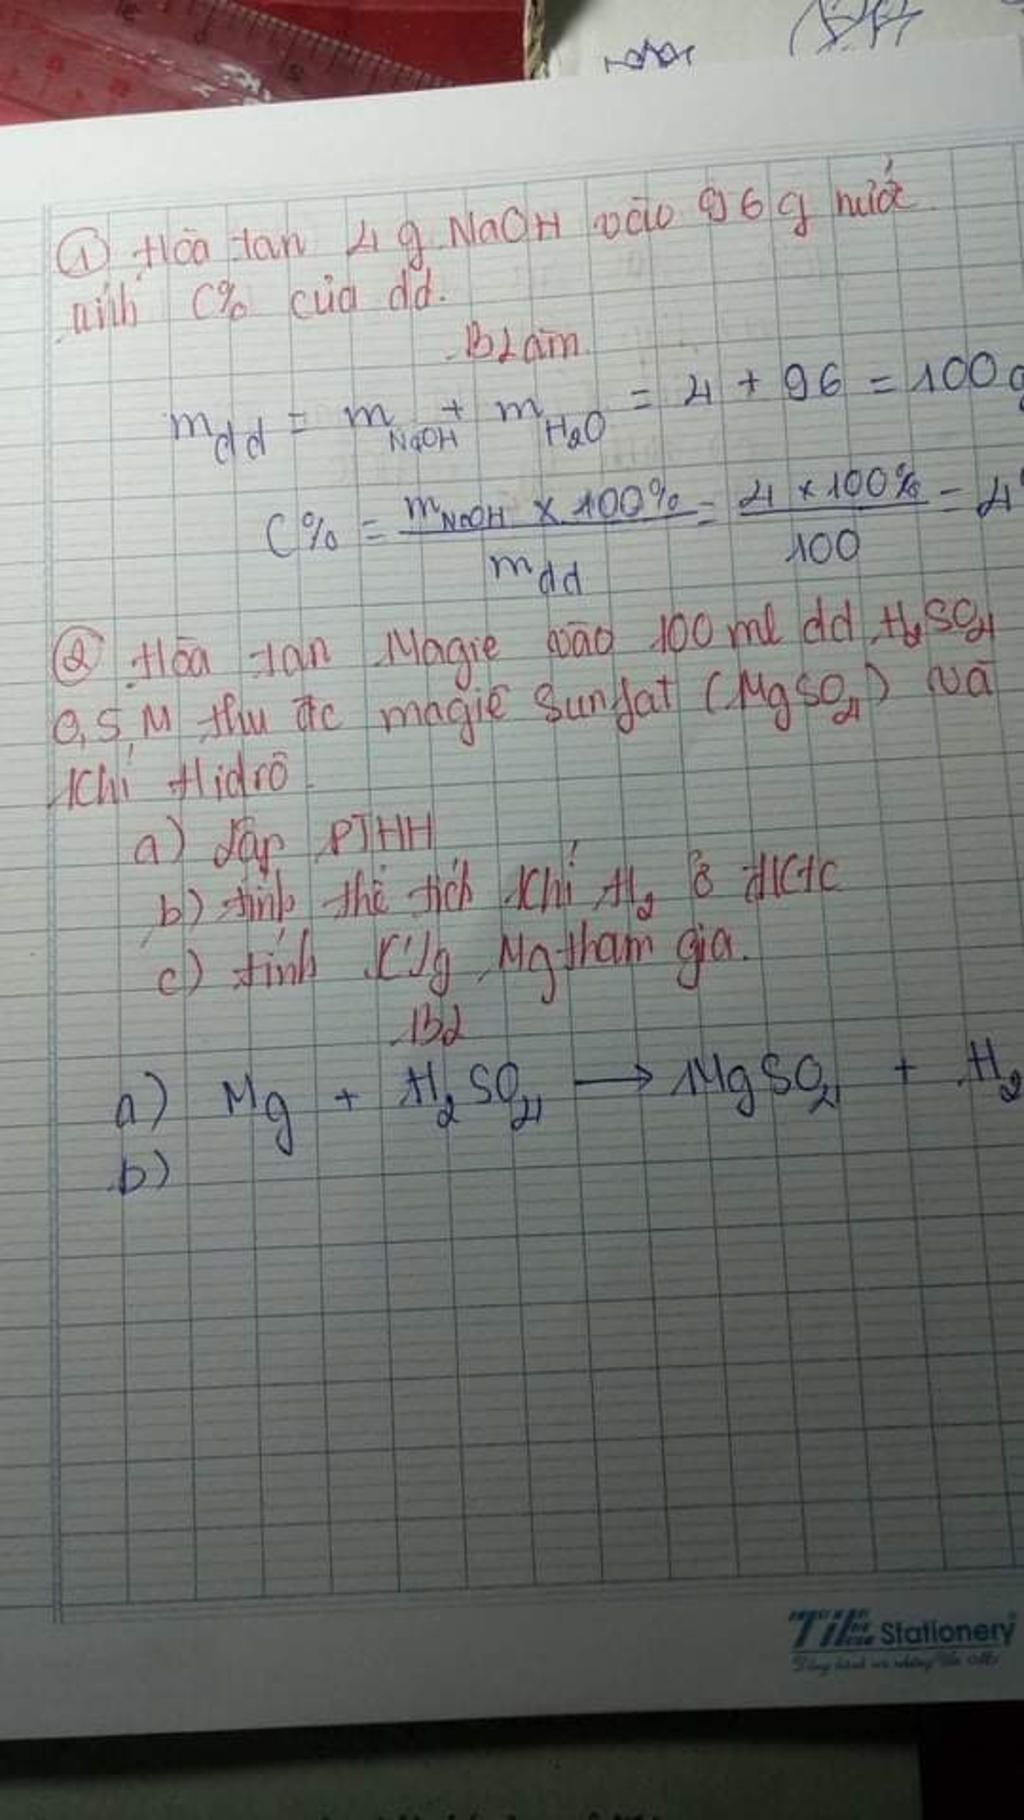 ① Hòa tan 4 g NaOH vào 96 g nước.
tính C% của dd.
BLàm
m dd = m NaOH + m H2O = 4 + 96 = 100 g
C% = m NaOH x 100% / m dd = 4 x 100% / 100 = 4
② Hòa tan Magie vào 100 ml dd H2SO4
0,5 M thu đc magiê Sunfat (MgSO4) và
Khí Hidrô.
a) lập PTHH
b) tính thể tích khí H2 ở đktc
c) tính Klg Mg tham gia.
BL
a) Mg + H2SO4 → MgSO4 + H2
b)
TiE Stationery